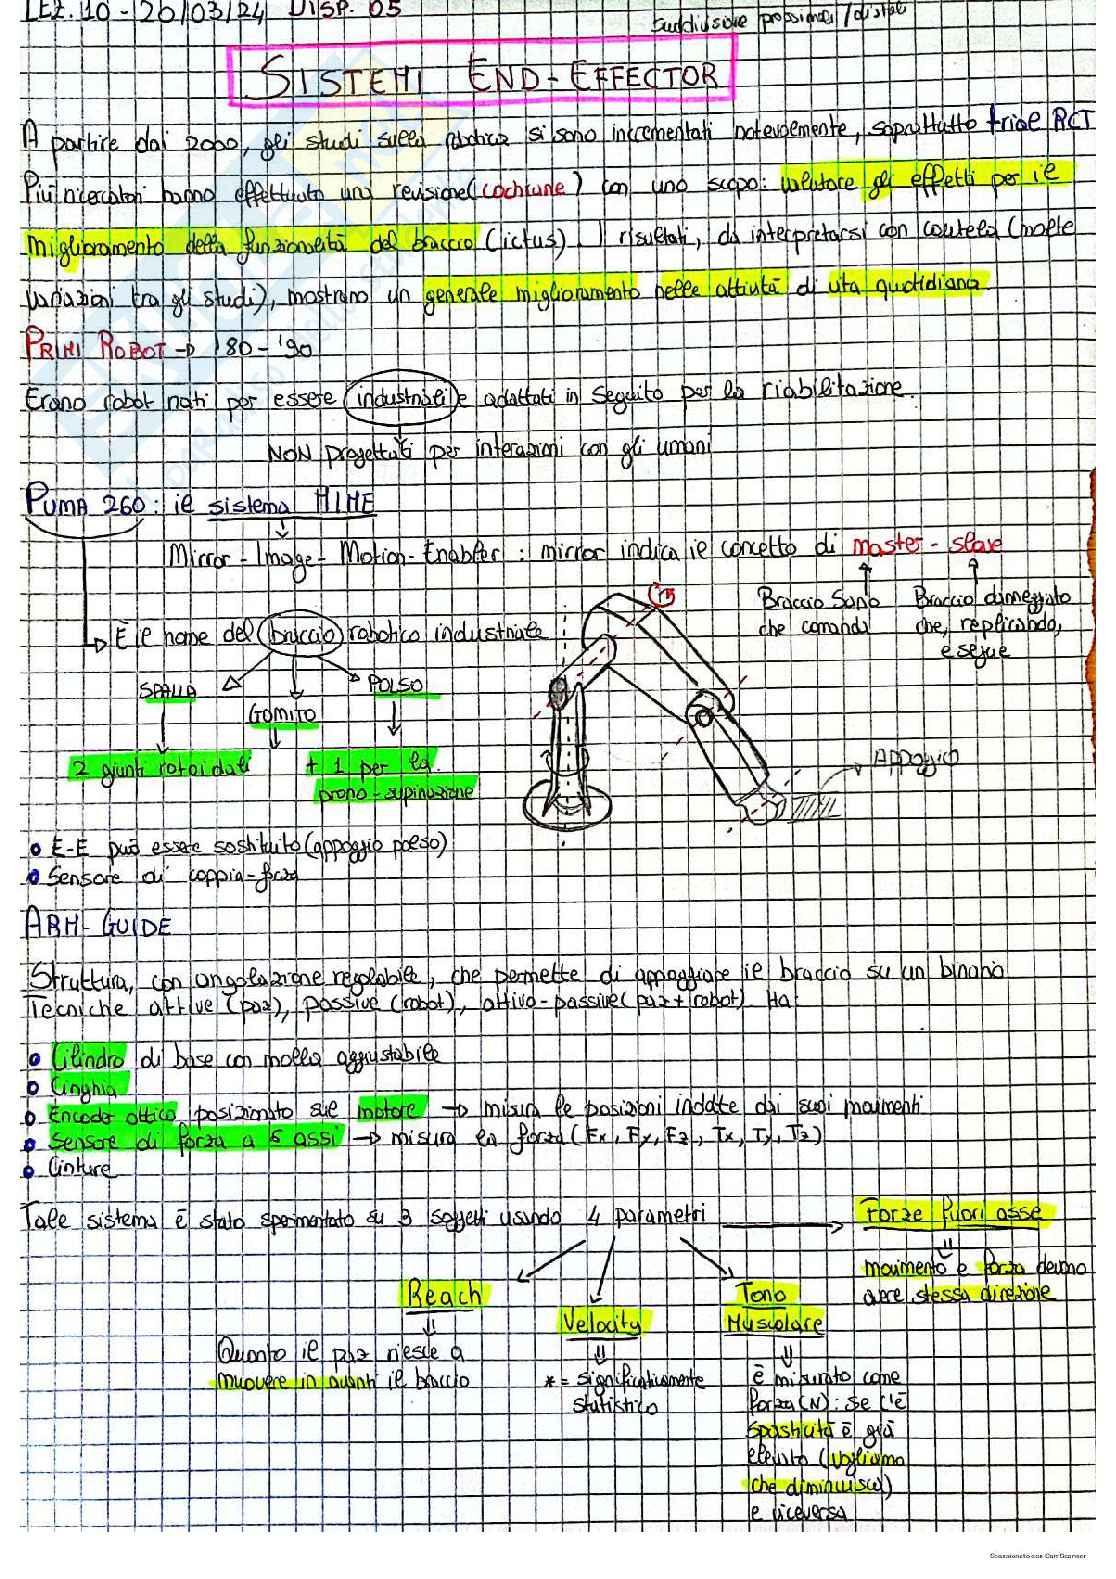 LEZ. 10 - 20/03/24 DISP. 05
Suddivisione prossimale/distale
SISTEMI END-EFFECTOR
A partire dai 2000, gli studi sulla robotica si sono incrementati notevolmente, soprattutto trial RCT
Più ricercatori hanno effettuato una revisione (cochrane) con uno scopo: valutare gli effetti per il
miglioramento della funzionalità del braccio (ictus). I risultati, da interpretarsi con cautela (molte
variazioni tra gli studi), mostrano un generale miglioramento nelle attività di vita quotidiana
PRIMI ROBOT → '80 - '90
Erano robot nati per essere industriali e adattati in seguito per la riabilitazione.
NON progettati per interazioni con gli umani
PUMA 260: il sistema MIME
Mirror - Image - Motion - Enabler : mirror indica il concetto di master - slave
Braccio sano che comanda
Braccio dimezzato che, replicando, esegue
È il nome del braccio robotico industriale
SPALLA
GOMITO
POLSO
2 giunti rotoidali
+ 1 per la
prono-supinazione
Appoggio
• E-E può essere sostituito (appoggio polso)
• Sensore di coppia-forza
ARM-GUIDE
Struttura, con angolazione regolabile, che permette di appoggiare il braccio su un binario
Tecniche attive (paz), passive (robot), attivo-passive (paz + robot) Ha:
• Cilindro di base con molla aggiustabile
• Cinghia
• Encoder ottico posizionato sul motore → misura le posizioni indotte dai suoi movimenti
• Sensore di forza a 6 assi → misura la forza (Fx, Fy, Fz, Tx, Ty, Tz)
• Cinture
Tale sistema è stato sperimentato su 3 soggetti usando 4 parametri
Forze fuori asse
movimento e forza devono
avere stessa direzione
Reach
Quanto il paz riesce a
muovere in avanti il braccio
Velocity
* = significativamente
statistico
Tono
Muscolare
È misurato come
forza (N): se c'è
spasticità è già
elevato (vogliamo
che diminuisca)
e viceversa
Scansionato con CamScanner